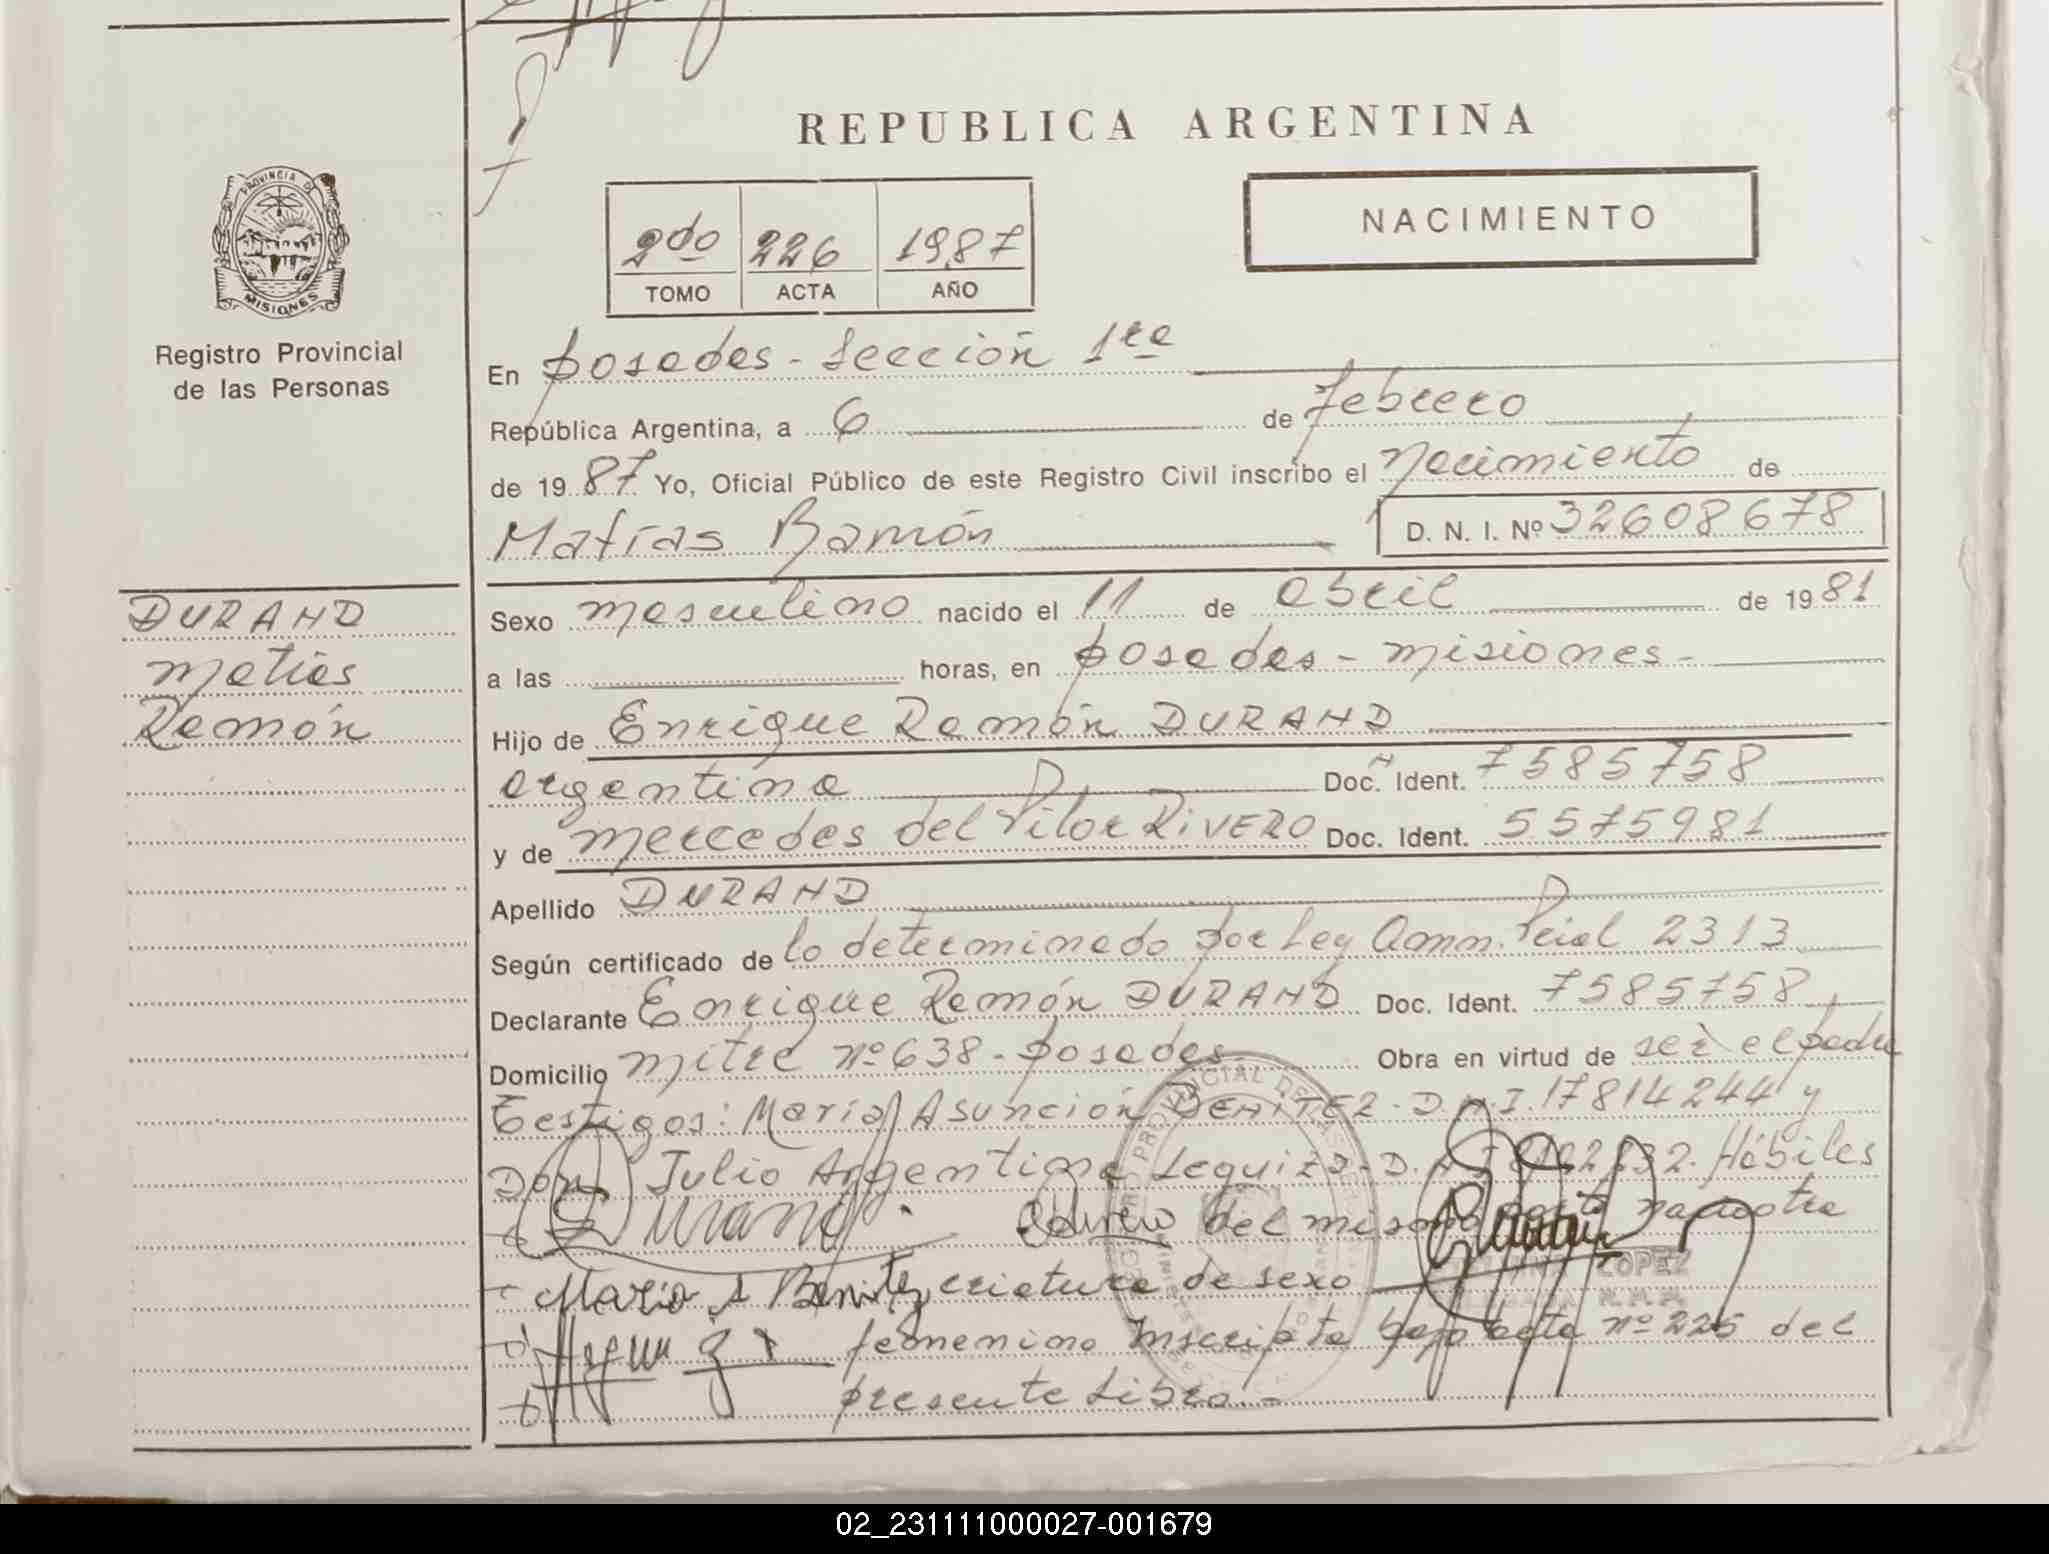 REPUBLICA ARGENTINA
NACIMIENTO
PROVINCIA DE
MISIONES
Registro Provincial
de las Personas
2do 226 1987
TOMO ACTA AÑO
En Posadas - Sección 1ra
República Argentina, a 6 de Febrero
de 1987 Yo, Oficial Público de este Registro Civil inscribo el Nacimiento de
Matías Ramón D. N. I. Nº 32608678
DURAND
Matías
Ramón
Sexo masculino nacido el 11 de abril de 1981
a las horas, en Posadas - Misiones -
Hijo de Enrique Ramón DURAND
argentino Doc. Ident. 7585758
y de Mercedes del Pilar RIVERO Doc. Ident. 5575981
Apellido DURAND
Según certificado de lo determinado por Ley Amn. Pcial 2313
Declarante Enrique Ramón DURAND Doc. Ident. 7585758
Domicilio Mitre nº 638 - Posadas Obra en virtud de ser el padre
Testigos: María Asunción BENITEZ - D.N.I. 17814244 y
Don Julio Argentino Leguiza - D. Hábiles
Durand del mismo parto nació otra
LOPEZ
Maria A Benitez criatura de sexo
femenino inscripta bajo acta nº 225 del
presente Libro.-
02_231111000027-001679